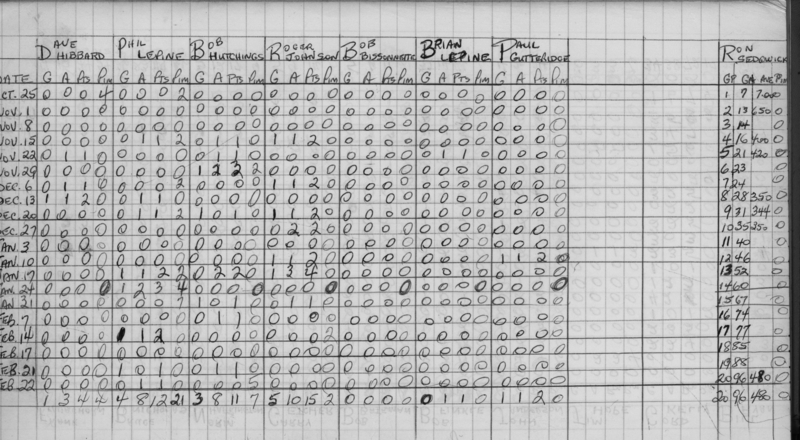 DAVE HIBBARD PHIL LEPINE BOB HUTCHINGS ROGER JOHNSON BOB BISSONNETTE BRIAN LEPINE PAUL GUTTERIDGE RON SEDGWICK
DATE G A Pts Pim G A Pts Pim G A Pts Pim G A Pts Pim G A Pts Pim G A Pts Pim G A Pts Pim GP GA AVE Pim
OCT. 25 0 0 0 4 0 0 0 2 0 0 0 0 0 0 0 0 0 0 0 0 0 0 0 0 0 0 0 0 1 7 7.000
NOV. 1 0 0 0 0 0 0 0 0 0 0 0 0 0 0 0 0 0 0 0 0 0 0 0 0 0 0 0 0 2 13 650 0
NOV. 8 0 0 0 0 0 0 0 0 0 0 0 0 0 0 0 0 0 0 0 0 0 0 0 0 0 0 0 0 3 14 0
NOV. 15 0 0 0 0 0 1 1 2 0 1 1 0 1 1 2 0 0 0 0 0 0 0 0 0 0 0 0 0 4 16 400 0
NOV. 22 0 1 1 0 0 0 0 0 0 1 1 0 0 0 0 0 0 0 0 0 0 1 1 0 0 0 0 0 5 21 420 0
NOV. 29 0 0 0 0 0 0 0 0 1 2 2 0 0 0 0 0 0 0 0 0 0 0 0 0 0 0 0 6 23 0
DEC. 6 0 1 1 0 0 0 0 2 0 0 0 0 1 1 2 0 0 0 0 0 0 0 0 0 0 0 0 0 7 24 0
DEC. 13 1 1 2 0 0 1 1 0 0 0 0 0 0 0 0 0 0 0 0 0 0 0 0 0 0 0 0 0 8 28 350 0
DEC. 20 0 0 0 0 0 1 1 2 1 0 1 0 1 1 2 0 0 0 0 0 0 0 0 0 0 0 0 0 9 31 344 0
DEC. 27 0 0 0 0 0 0 0 0 0 0 0 0 0 2 2 0 0 0 0 0 0 0 0 0 0 0 0 0 10 35 350 0
JAN. 3 0 0 0 0 0 0 0 0 0 0 0 0 0 0 0 0 0 0 0 0 0 0 0 0 0 0 0 0 11 40 0
JAN. 10 0 0 0 0 0 0 0 0 0 0 0 0 1 1 2 0 0 0 0 0 0 0 0 0 1 1 2 0 12 46 0
JAN. 17 0 0 0 0 1 1 2 2 0 2 2 0 1 3 4 0 0 0 0 0 0 0 0 0 0 0 0 0 13 52 0
JAN. 24 0 0 0 0 1 2 3 4 0 0 0 0 0 0 0 0 0 0 0 0 0 0 0 0 0 0 0 0 14 60 0
JAN 31 0 0 0 0 0 0 0 1 0 1 0 0 1 1 0 0 0 0 0 0 0 0 0 0 0 0 0 15 67 0
FEB. 7 0 0 0 0 0 0 0 0 0 1 1 0 0 0 0 0 0 0 0 0 0 0 0 0 0 0 0 0 16 74 0
FEB. 14 0 0 0 0 1 1 2 0 0 0 0 0 0 0 2 0 0 0 0 0 0 0 0 0 0 0 0 17 77 0
FEB. 17 0 0 0 0 0 0 0 0 0 0 0 0 0 0 0 0 0 0 0 0 0 0 0 0 0 0 0 0 18 85 0
FEB. 21 0 0 0 0 1 0 1 0 0 1 1 0 0 0 0 0 0 0 0 0 0 0 0 0 0 0 0 0 19 88 0
FEB. 22 0 0 0 0 0 1 1 0 0 0 0 5 0 0 0 0 0 0 0 0 0 0 0 0 0 0 0 0 20 96 480 0
1 3 4 4 4 8 12 21 3 8 11 7 5 10 15 2 0 0 0 0 0 1 1 0 1 1 2 0 20 96 480 0